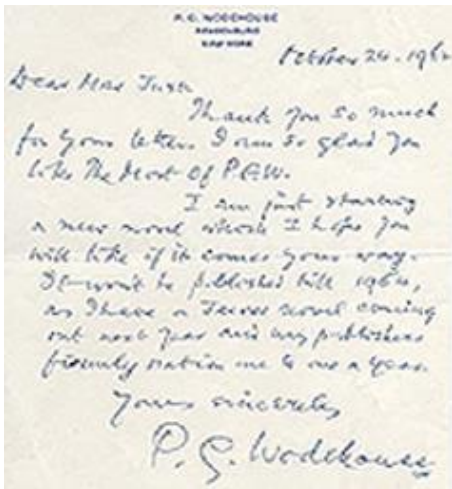 P. G. WODEHOUSE
REMSENBURG
NEW YORK
October 24. 1962
Dear Mrs
Thank you so much
for your letter. I am so glad you
like The Most Of P.G.W.
I am just starting
a new novel which I hope you
will like if it comes your way.
It won't be published till 1964,
as I have a Jeeves novel coming
out next year and my publishers
firmly ration me to one a year.
Yours sincerely
P. G. Wodehouse